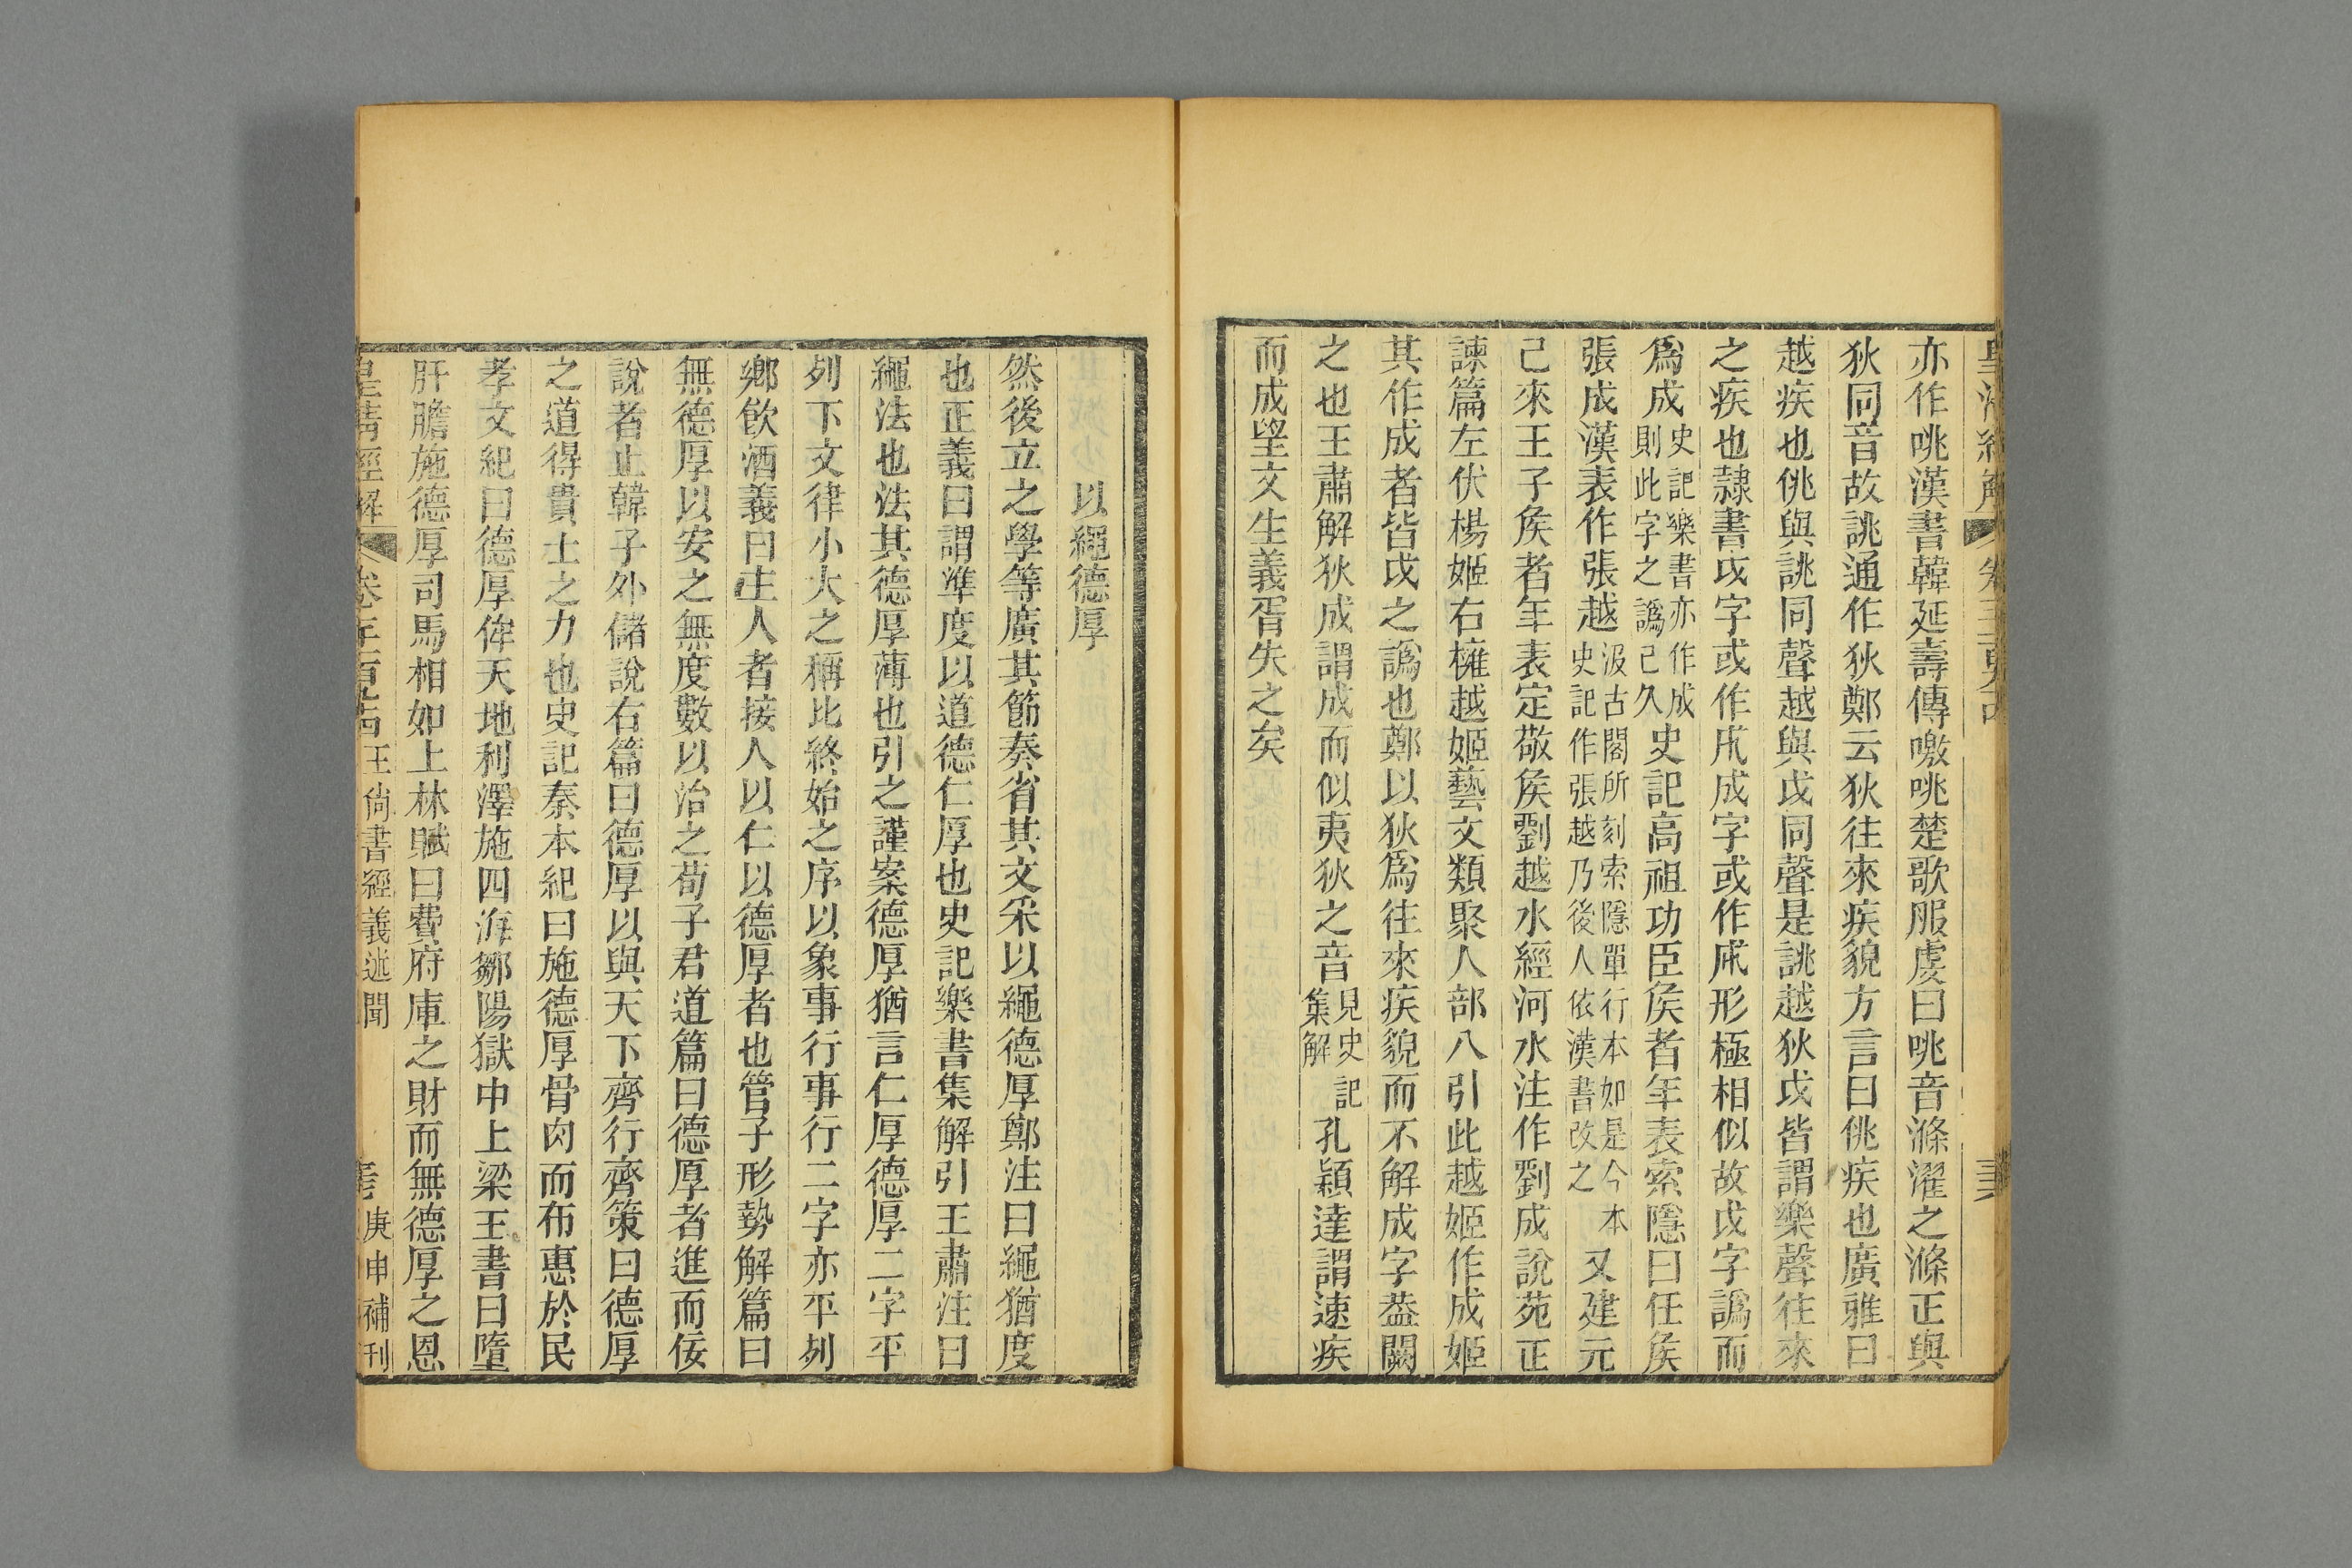 亦作咷漢書韓延壽傳噭咷楚歌服虔曰咷音滌濯之滌正與
狄同音故誂通作狄鄭云狄往來疾貌方言曰佻疾也廣雅曰
越疾也佻與誂同聲越與戉同聲是誂越狄戉皆謂樂聲往來
之疾也隷書戉字或作𢦑成字或作𢦩形極相似故戉字譌而
爲成史記樂書亦作成則此字之譌已久史記高祖功臣矦者年表索隱曰任矦
張成漢表作張越汲古閣所刻索隱單行本如是今本史記作張越乃後人依漢書改之又建元
已來王子矦者年表定敬矦劉越水經河水注作劉成說苑正
諫篇左伏楊姬右擁越姬藝文類聚人部八引此越姬作成姬
其作成者皆戉之譌也鄭以狄爲往來疾貌而不解成字葢闕
之也王肅解狄成謂成而似夷狄之音見史記集解孔穎達謂速疾
而成望文生義胥失之矣
以繩德厚
然後立之學等廣其節奏省其文采以繩德厚鄭注曰繩猶度
也正義曰謂準度以道德仁厚也史記樂書集解引王肅注曰
繩法也法其德厚薄也引之謹案德厚猶言仁厚德厚二字平
列下文律小大之稱比終始之序以象事行事行二字亦平列
鄉飲酒義曰主人者接人以仁以德厚者也管子形勢解篇曰
無德厚以安之無度數以治之荀子君道篇曰德厚者進而佞
說者止韓子外儲說右篇曰德厚以與天下齊行齊策曰德厚
之道得貴士之力也史記秦本紀曰施德厚骨肉而布惠於民
孝文紀曰德厚侔天地利澤施四海鄒陽獄中上梁王書曰墮
肝膽施德厚司馬相如上林賦曰費府庫之財而無德厚之恩
皇清經解 王尙書經義述聞 庚申補刊